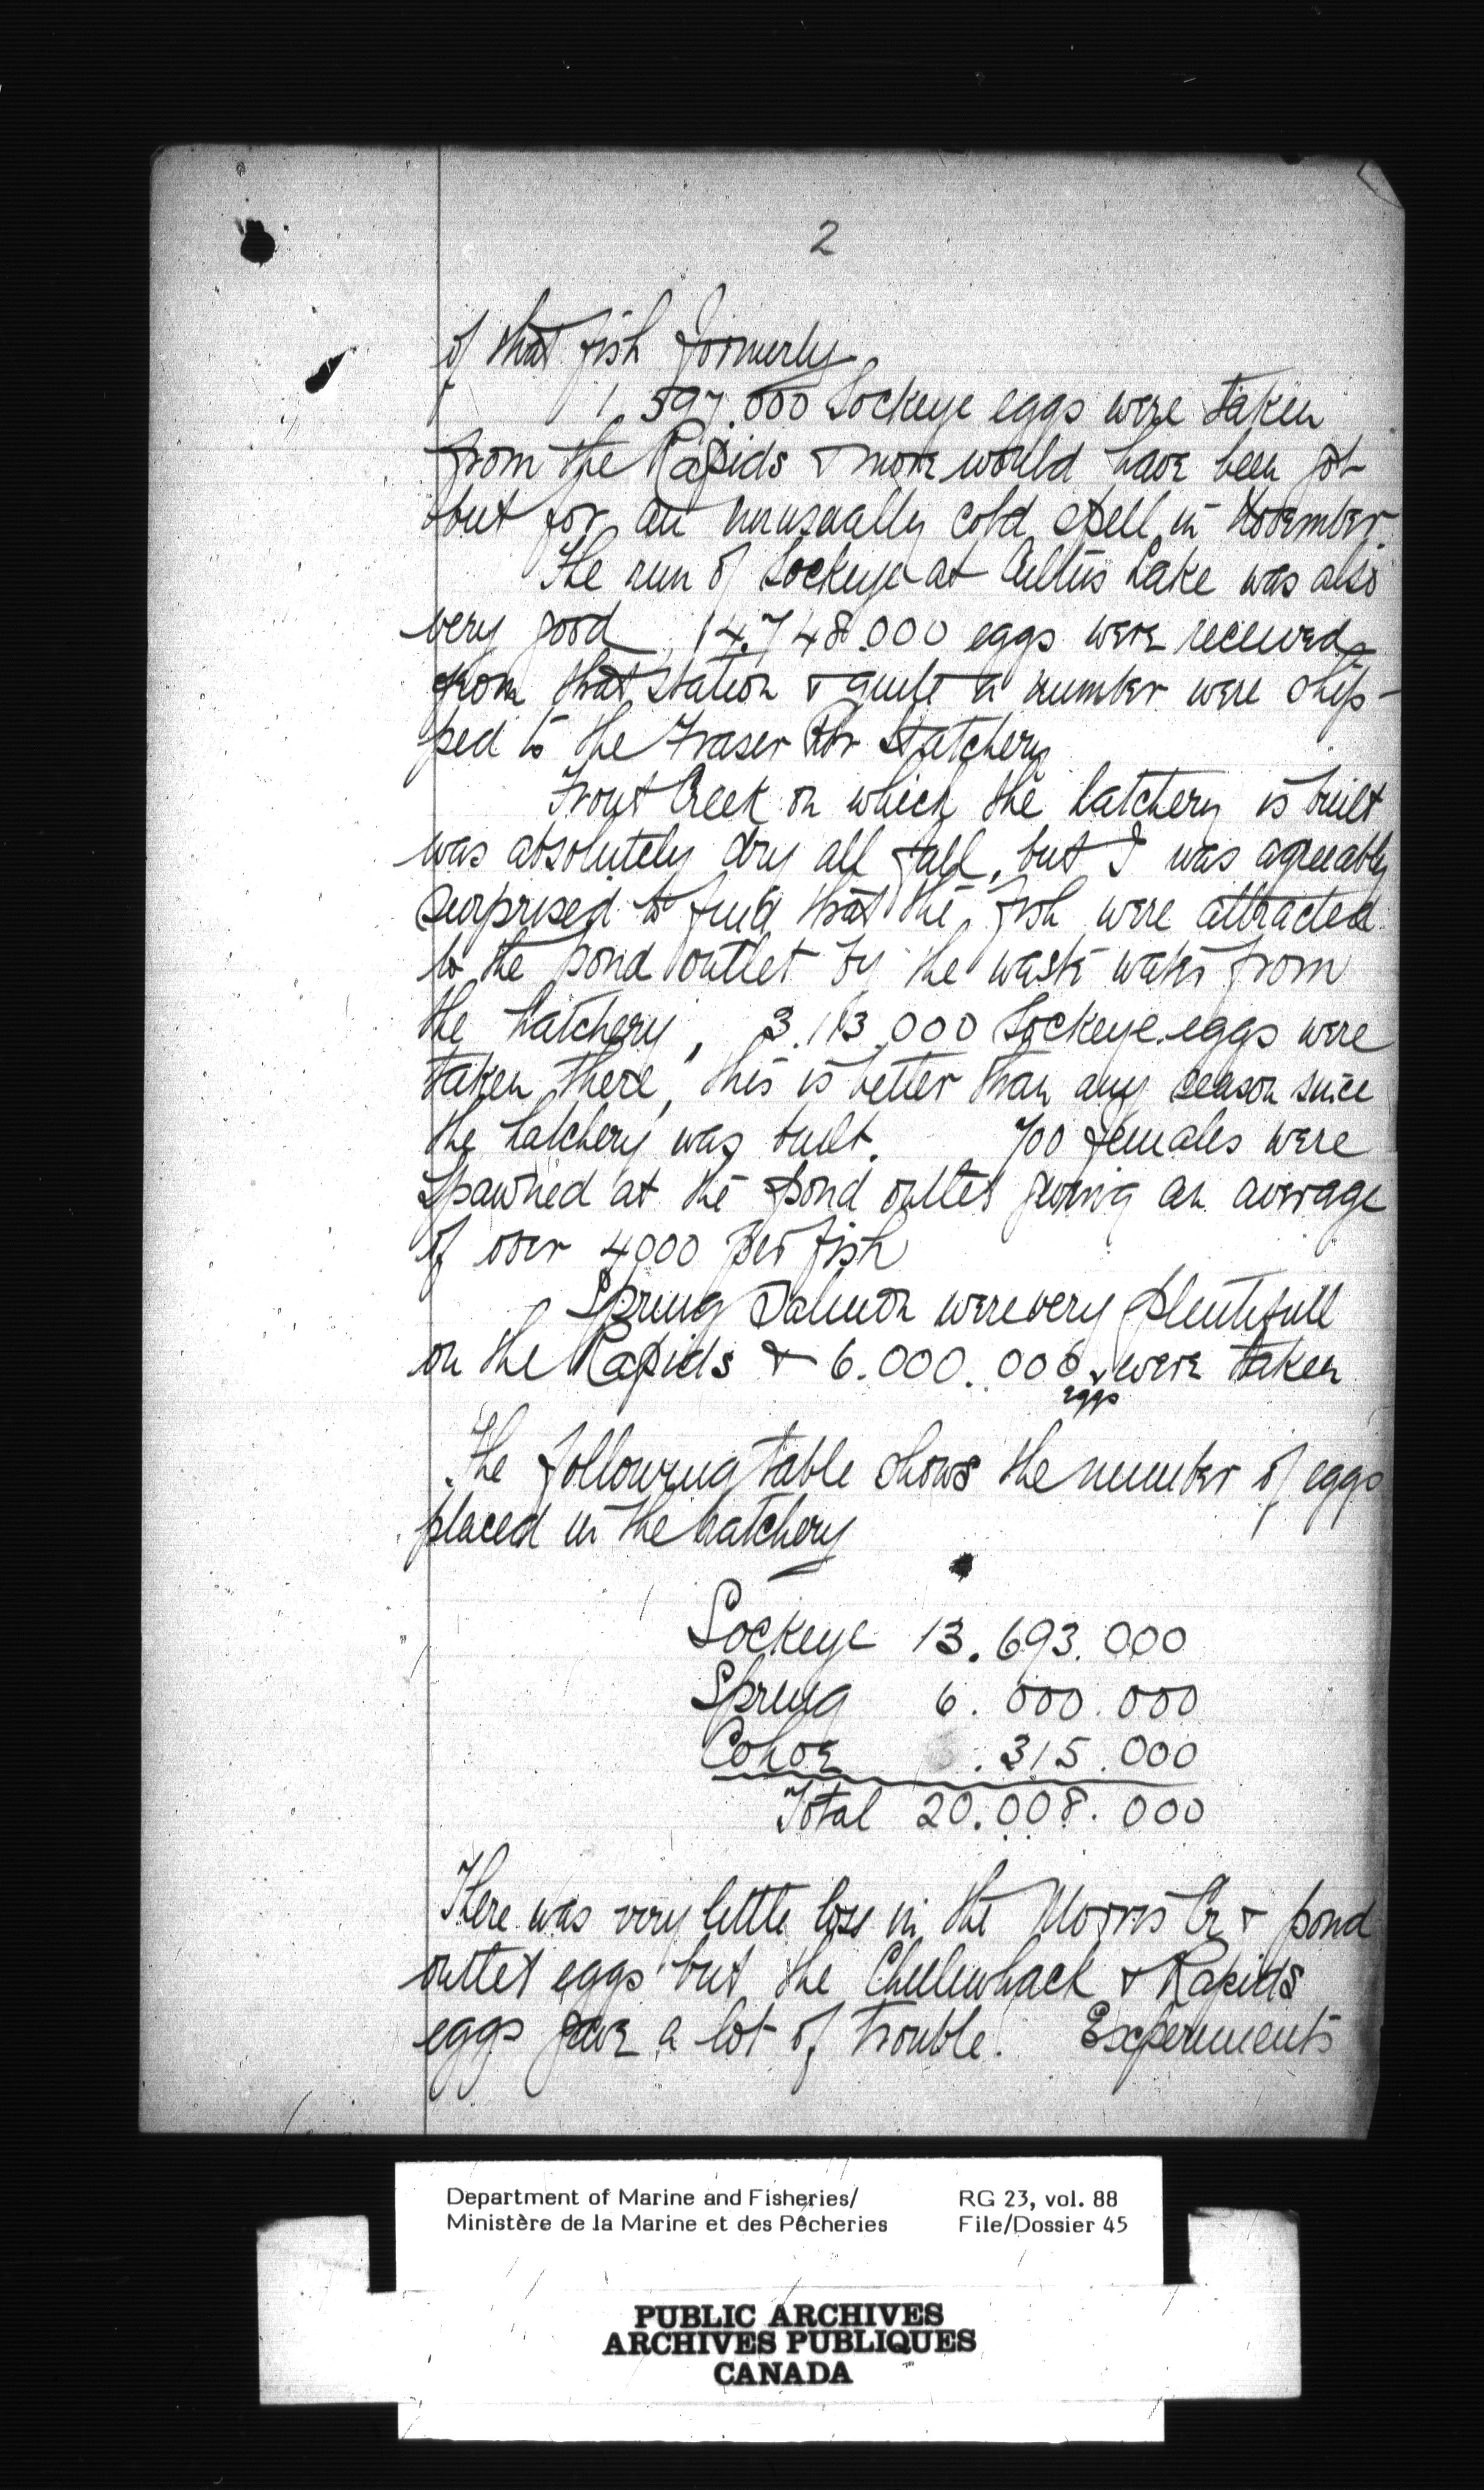 2
of that fish formerly.
1.597.000 Sockeye eggs were taken
from the Rapids & more would have been got
but for an unusually cold spell in November.
The run of Sockeye at Cultus Lake was also
very good 14.748.000 eggs were received
from that station & quite a number were ship-
ped to the Fraser Rvr Hatchery
Trout Creek on which the hatchery is built
was absolutely dry all fall, but I was agreeably
surprised to find that the fish were attracted
to the pond outlet by the waste water from
the hatchery, 3.113.000 Sockeye eggs were
taken there, this is better than any season since
the hatchery was built. 700 females were
spawned at the pond outlet giving an average
of over 4000 per fish
Spring Salmon were very plentifull
on the Rapids & 6.000.000 eggs were taken
The following table shows the number of eggs
placed in the hatchery
Sockeye 13.693.000
Spring 6.000.000
Cohoe .315.000
Total 20.008.000
There was very little loss in the Morris Cr & pond
outlet eggs but the Chilliwhack & Rapids
eggs gave a lot of trouble. Experiments
Department of Marine and Fisheries/ RG 23, vol. 88
Ministère de la Marine et des Pêcheries File/Dossier 45
PUBLIC ARCHIVES
ARCHIVES PUBLIQUES
CANADA